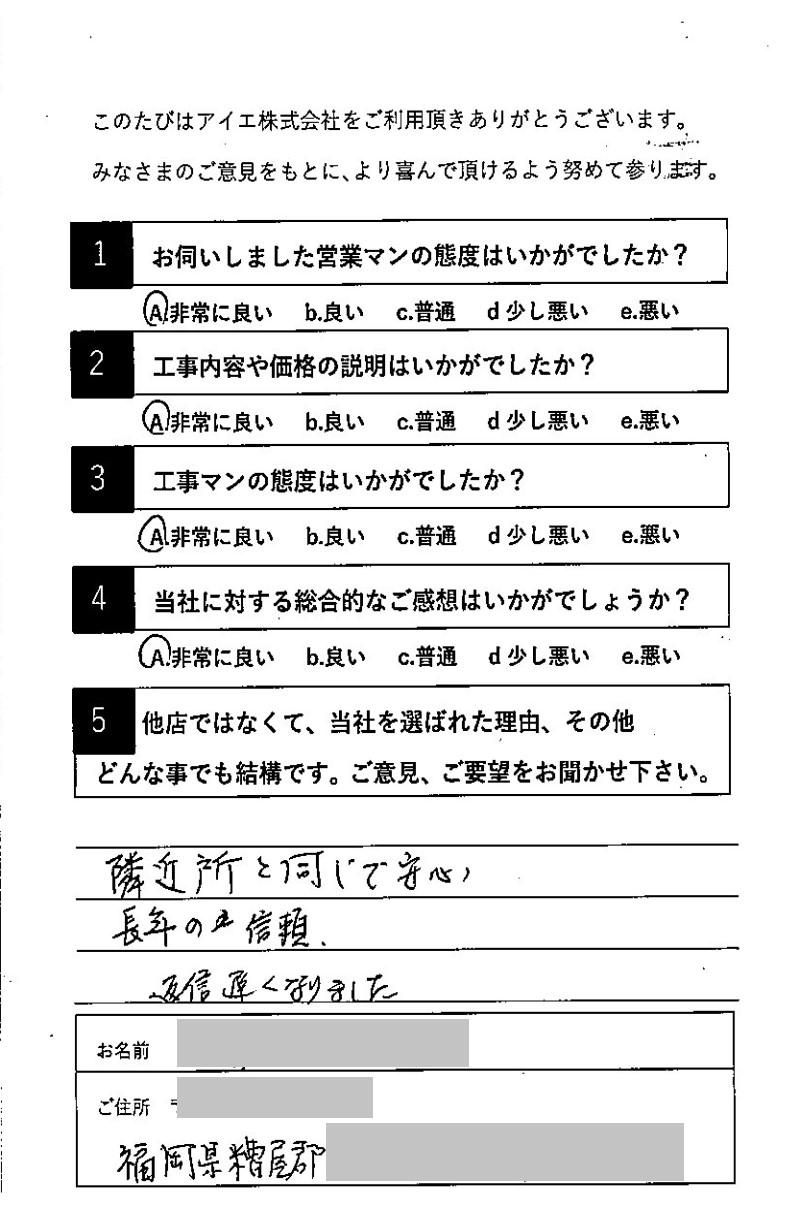 このたびはアイエ株式会社をご利用頂きありがとうございます。
みなさまのご意見をもとに、より喜んで頂けるよう努めて参ります。
1 お伺いしました営業マンの態度はいかがでしたか？
A.非常に良い b.良い c.普通 d 少し悪い e.悪い
2 工事内容や価格の説明はいかがでしたか？
A.非常に良い b.良い c.普通 d 少し悪い e.悪い
3 工事マンの態度はいかがでしたか？
A.非常に良い b.良い c.普通 d 少し悪い e.悪い
4 当社に対する総合的なご感想はいかがでしょうか？
A.非常に良い b.良い c.普通 d 少し悪い e.悪い
5 他店ではなくて、当社を選ばれた理由、その他
どんな事でも結構です。ご意見、ご要望をお聞かせ下さい。
隣近所と同じで安心、
長年の 信頼、
返信遅くなりました
お名前
ご住所 〒
福岡県糟屋郡